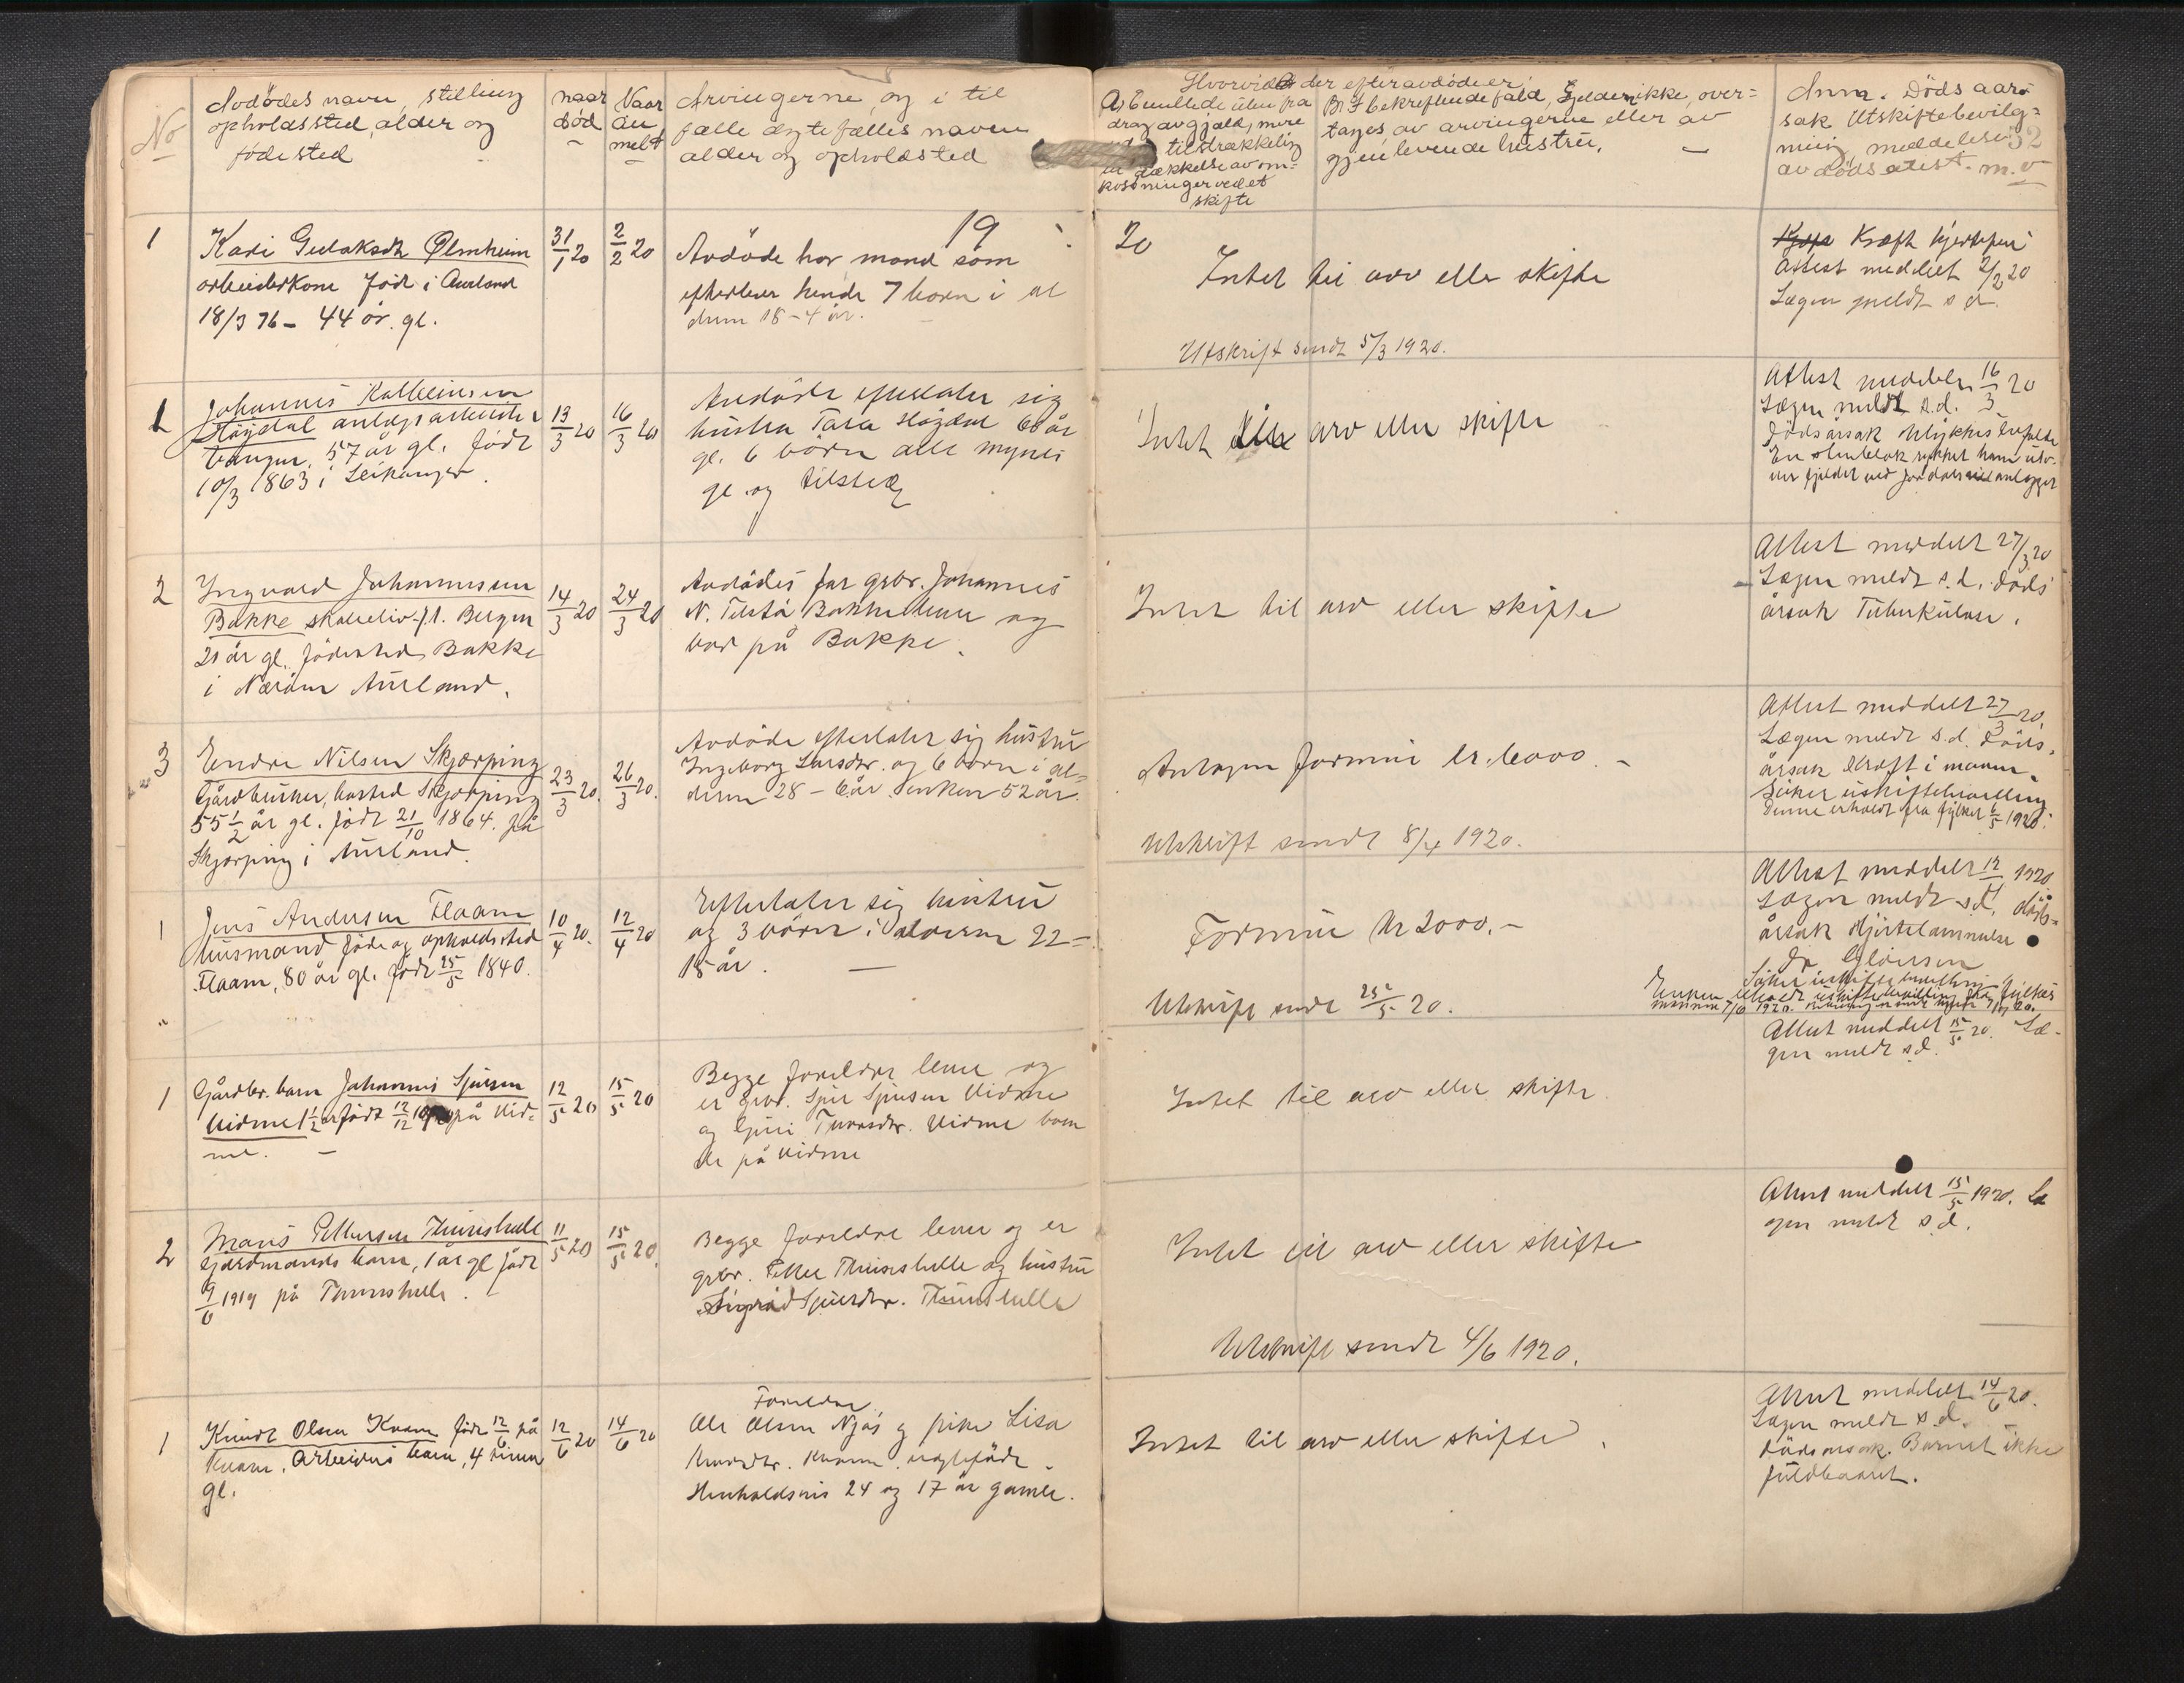 No
Avdödes navn, stilling
opholdssted, alder og
födested
naar
död
Naar
an
meldt
Arvingerne, og i til
fælle ægtefælles navn
alder og opholdsted
Hvorvidt der efter avdöde er:
A) Enullede uten fra
drag av gjæld, mere
tilstrækkelig
dækkelse av om-
kostninger ved et
skifte
B) I bekreftende fald, Gjelden ikke, over-
tages av arvingerne eller av
gjenlevende hustru.
Anm. Döds aar-
sak Utskiftebevilg-
ning meddelelse
av döds atest. m.v
52
19
20
1
Kari Gulaksdt Ølmheim
arbeiderkone född i Aurland
18/3 76 - 44 år. gl.
31/1 20
2/2 20
Avdöde har mand som
efterlever hende 7 born i al
deren 18 - 4 år.
Intet til arv eller skifte
Utskrift sendt 5/3 1920.
Kræft hjertefeil
Attest meddelt 2/2 20
Lægen meldt s d.
1
Johannes
Høydal anlægsarbeider
57 år gl. Født
10/3 1863 i Leikanger.
13/3 20
16/3 20
Avdöde efterlater sig
hustru Høgdal 60 år
gl. 6 börn alle myndi
ge og tilsted
Intet arv eller skifte
Attest meddelt 16/3 20
Lægen meldt s.d.
Dödsårsak Ulykkestilfælde
En stenblok
2
Ingvald Johannessen
Bakke skoleelev p.t. Bergen
21 år gl. födested Bakke
i Nærøen Aurland.
14/3 20
24/3 20
Avdödes far grbr. Johannes
N. Bakke lever og
bor på Bakke.
Intet til arv eller skifte
Attest meddelt 27/3 20
Lægen meldt s.d. Döds
årsak Tuberkulose.
3
Endre Nilsen Skjerping
Gårdbruker, bosted Skjerping
55 1/2 år gl. född 21/10 1864. på
Skjerping i Aurland.
23/3 20.
26/3 20.
Avdöde efterlater sig hustru
Ingeborg Larsdtr. og 6 born i al-
deren 28 - 6 år. enken 52 år.
Antagen formue kr. 6000. -
Utskrift sendt 8/4 1920.
Attest meddelt 27/3 20.
Lægen meldt s.d. Döds-
årsak Kræft i maven.
Søker uskiftebevilling
Denne erholdt fra fylket 6/5 1920.
1
Jens Andersen Flaam
husmand föde og opholdssted
Flaam, 80 år gl. född 25/5 1840.
10/4 20.
12/4 20
Efterlater sig hustru
og 3 börn i alderen 22 -
15 år.
Formue kr 2000. -
Utskrift sendt 25/5 20.
Attest meddelt 12/4 1920
Lægen meldt s.d. döds-
årsak Hjertelammelse
Søker uskifte bevilling
Enken erholdt uskiftebevilling fra fylkes
1
Gårdbr. barn Johannes Sjursen
Vidme 1 1/2 år född 12/12 på Vid-
me.
12/5 20
15/5 20
Begge foreldre lever og
er grbr. Sjur Sjursen Vidme
og Guri Vidme boen
de på Vidme
Intet til arv eller skifte.
Attest meddelt 15/5 20. Læ-
gen meldt s.d.
2
Maris Pettersen Tunshelle
Gårdmands barn, 1 år gl född
9/6 1919 på Tunshelle.
11/5 20
15/5 20.
Begge foreldre lever og er
grbr. Petter Tunshelle og hustru
Sigrid Sjursdtr. Tunshelle
Intet til arv eller skifte
Utskrift sendt 4/6 1920.
Attest meddelt 15/5 1920. Læ
gen meldt s.d.
1
Knut Olsen Kvam född 12/6 på
Kvam. Arbeiders barn, 4 timer
gl.
12/6 20
14/6 20
Foreldre
Ole Olsen Njøs og pike Lisa
Knutsdtr. Kvam uegtefödt.
Henholdsvis 24 og 17 år gamle.
Intet til arv eller skifte.
Attest meddelt 14/6 20.
Lægen meldt s.d.
Dödsarsak. Barnet ikke
fuldbaaret.